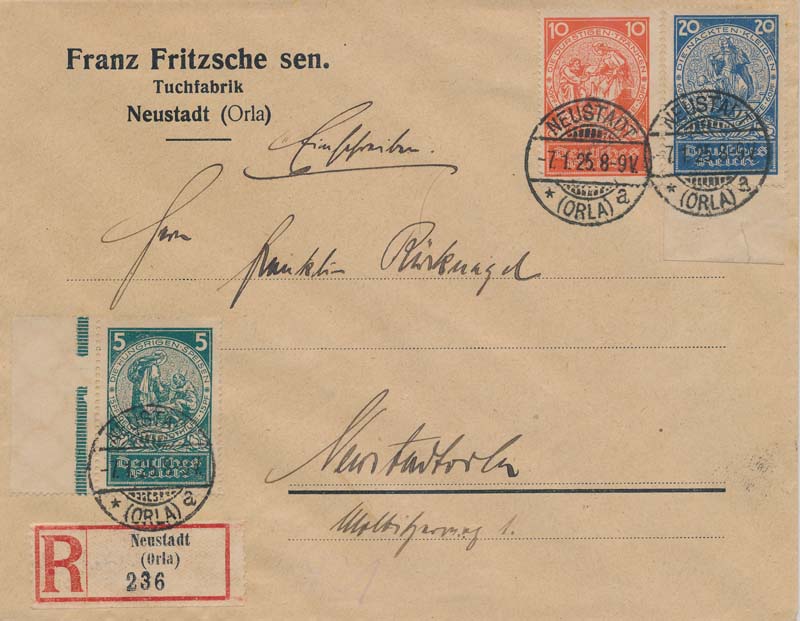 Franz Fritzsche sen.
Tuchfabrik
Neustadt (Orla)
Einschreiben.
10 10
DIE DURSTIGEN TRÄNKEN
Deutsches
Reich
20 20
DIE NACKTEN KLEIDEN
Deutsches
Reich
NEUSTADT
-7.1.25.8-9V.
* (ORLA) a
NEUSTADT
-7.1.25.8-9V.
* (ORLA) a
Herrn
Rücknagel
5 5
DIE HUNGRIGEN SPEISEN
Deutsches
Reich
NEUSTADT
* (ORLA) a
Neustadtorla
Molbitzerweg 1.
R
Neustadt
(Orla)
236